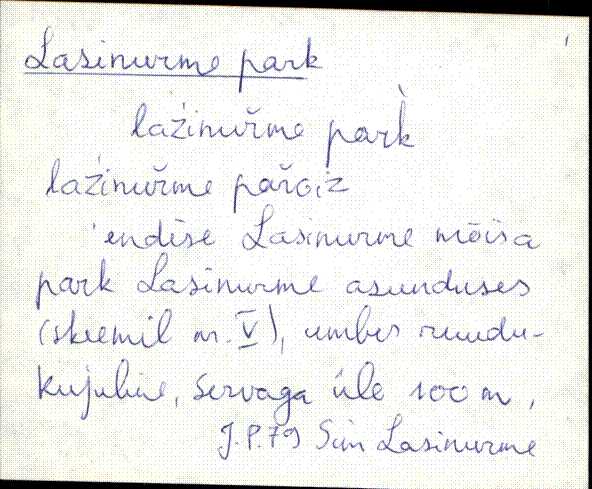 Lasinurme park
lažinuřme park̀
lažinuřme pařgi̭z
endise Lasinurme mõisa
park Lasinurme asunduses
(skeemil nr. V), umbes ruudu-
kujuline, servaga üle 100 m,
J. P. 79 Sim Lasinurme